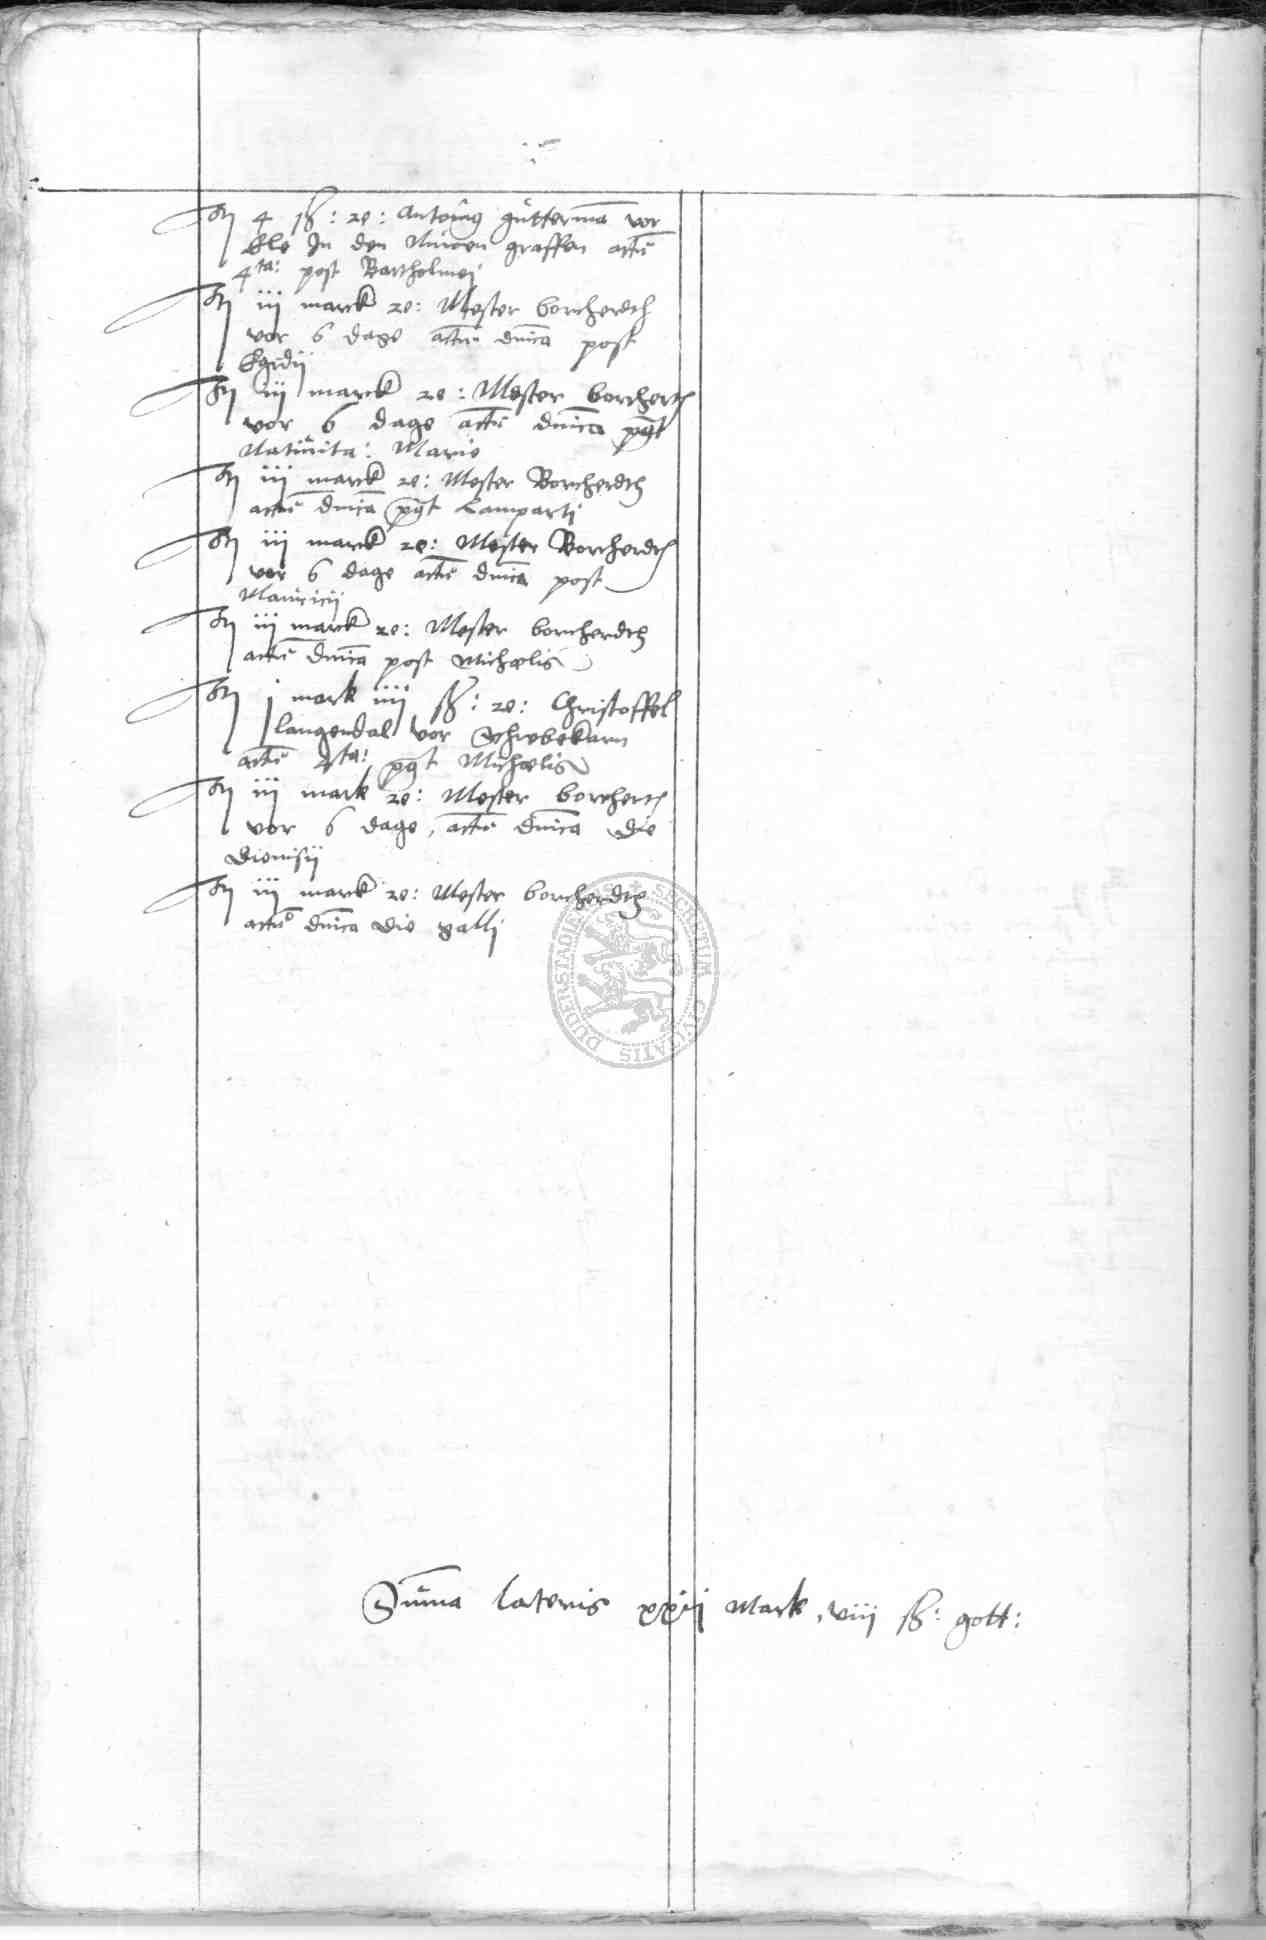 4 ß: re: Antonius gutterman vor
In den Nuwen graffen actum
4ta: post Bartholmei
iij marck re: Mester borcherdth
vor 6 dage actū dnica post
Egidij
iij marck re: Mester borchert
vor 6 dage actū dnica post
Natiuita: Marie
iij marck re: Mester Borcherdth
actū dnica post Lamparti
iij marck re: Mester Borcherdth
vor 6 dage actū dnica post
Mauricij
iij marck re: Mester borcherdth
actū dnica post Michaelis
j mark iiij ß: re: Christoffel
langendal vor Schebekarn
actū 4ta: post Michaelis
iij mark re: Mester borchert
vor 6 dage, actū dnica die
dionisij
iij marck re: Mester borcherdth
actū dnica die galli
SECRETUM CIVITATIS DUDERSTADIENSIS
Suma lateris xxij Mark, viij ß: gott: